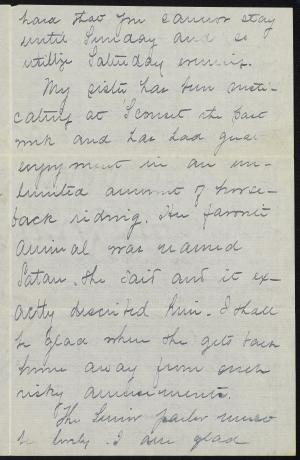 hard that you cannot stay
until Sunday and so
utilize Saturday evening.
My sister has been rusti-
cating at 'Sconset the past
week and has had great
enjoyment in an un-
limited amount of horse-
back riding. Her favorite
animal was named
Satan. She said and it ex-
actly described him. I shall
be glad when she gets back
home away from such
risky amusements.
The Senior parlor must
be lovely. I am glad